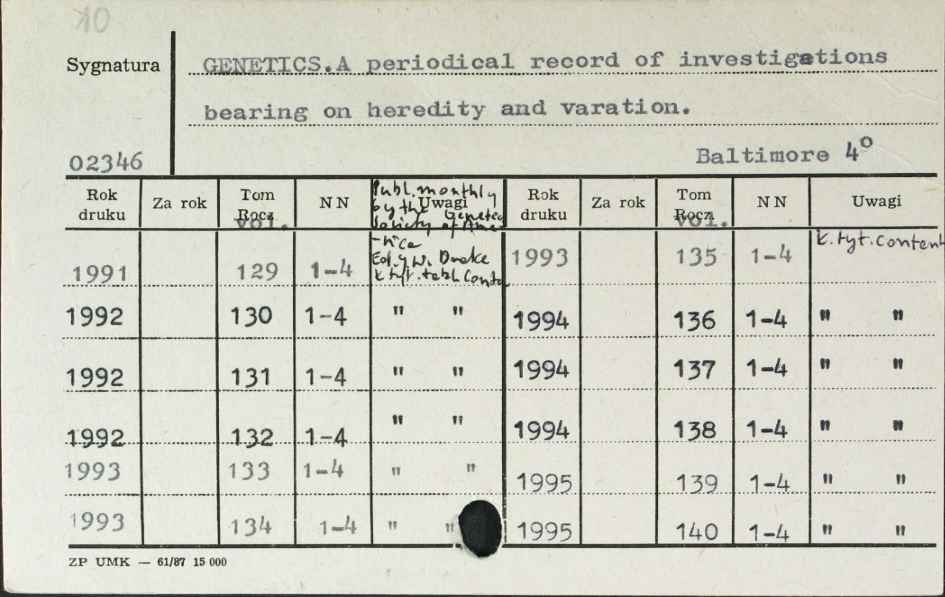 10
Sygnatura GENETICS.A periodical record of investigations
bearing on heredity and varation.
02346 Baltimore 4°
Rok druku Za rok Tom Rocz. vol. NN Uwagi Rok druku Za rok Tom Rocz. vol. NN Uwagi
Publ. monthly
by the Genetcs
Society of Ame-
-rica
Ed. J.W. Drake
k. tyt. tabl. Conte
k. tyt. content
1991 129 1-4 1993 135 1-4
1992 130 1-4 " " 1994 136 1-4 " "
1992 131 1-4 " " 1994 137 1-4 " "
1992 132 1-4 " " 1994 138 1-4 " "
1993 133 1-4 " " 1995 139 1-4 " "
1993 134 1-4 " " 1995 140 1-4 " "
ZP UMK — 61/87 15 000